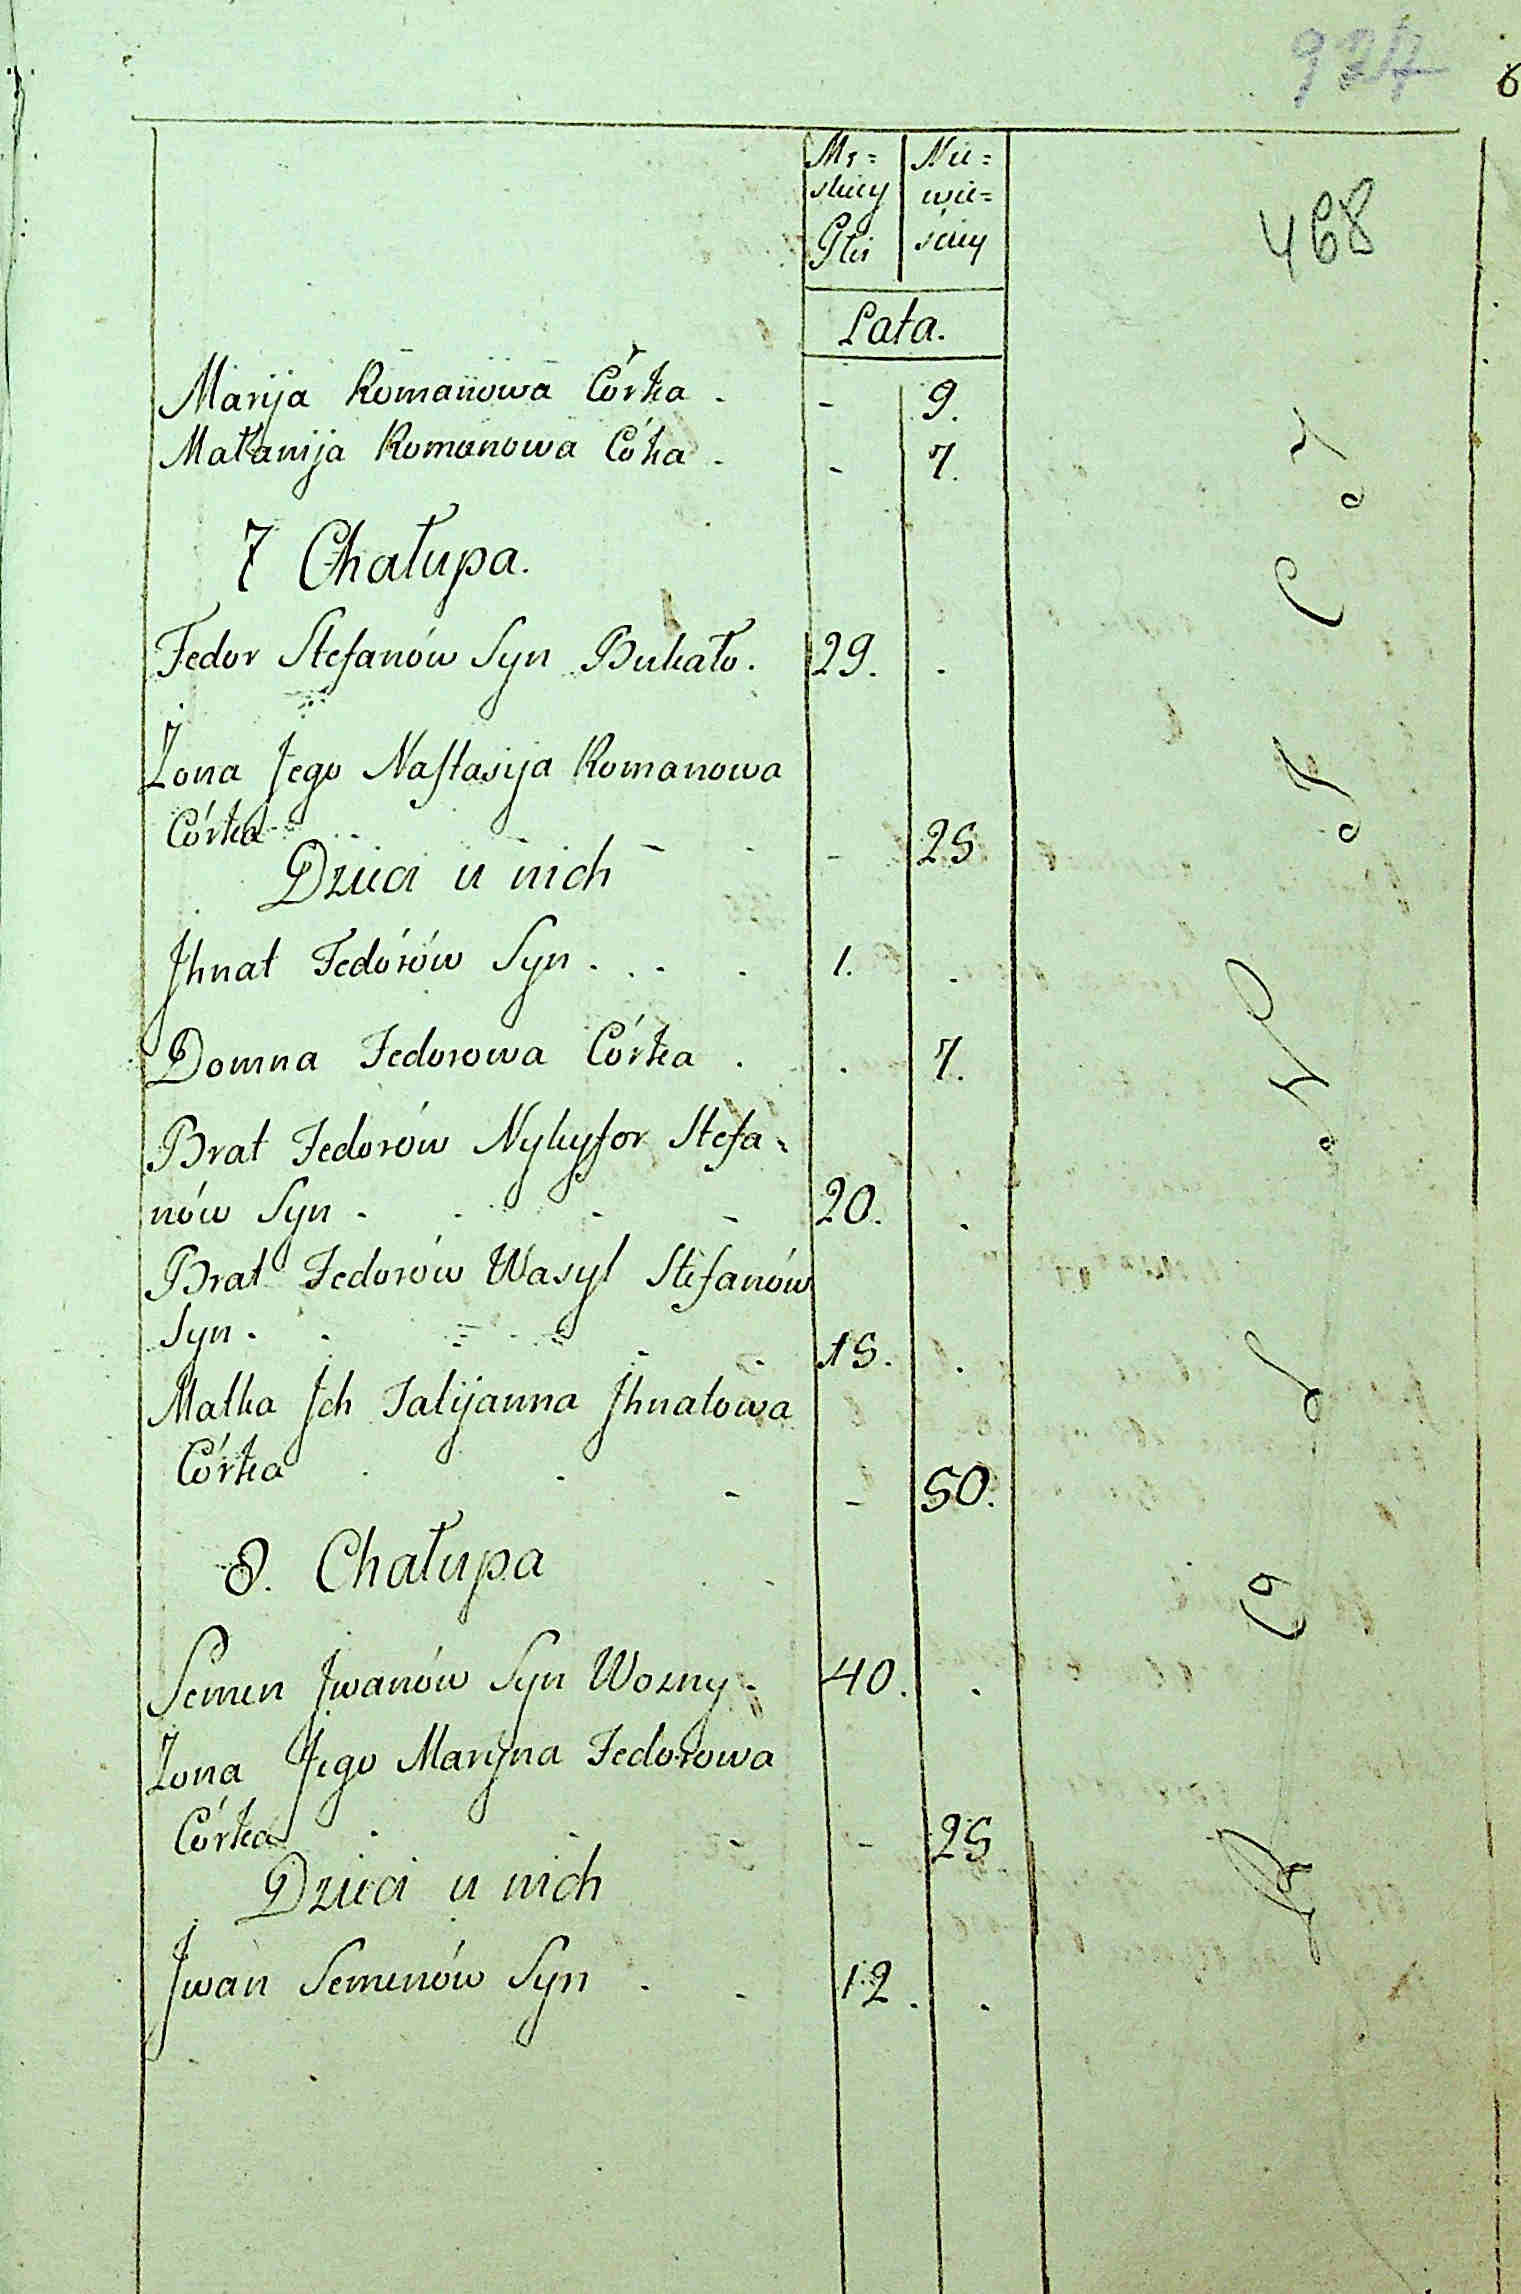 6
468
Mę= Nie=
skiey wie=
Płci ściey
Lata.
Marija Romanowa Córka . - 9.
Małanija Romanowa Córka . - 7.
7 Chałupa.
Fedor Stefanów Syn Bukało. 29. .
Żona Jego Nastasija Romanowa
Córka - 25
Dzieci u nich
Jhnat Fedorów Syn . . . . 1. .
Domna Fedorowa Córka . . 7.
Brat Fedorów Nykyfor Stefa-
nów Syn - . . - - 20. .
Brat Fedorów Wasyl Stefanów
Syn . . 15. .
Matka Jch Tatijanna Jhnatowa
Córka . - - - 50.
8. Chałupa
Semen Jwanów Syn Wozny . 40. .
Żona Jego Maryna Fedorowa
Córka . - - - 25
Dzieci u nich
Jwan Semenów Syn . . 12. .